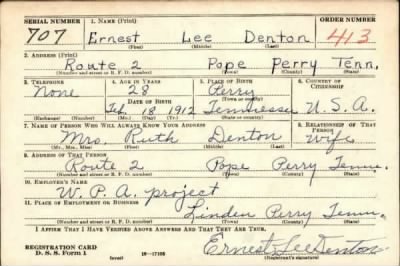 SERIAL NUMBER 1. NAME (Print) ORDER NUMBER
707 Ernest Lee Denton 413
(First) (Middle) (Last)
2. ADDRESS (Print)
Route 2 Pope Perry Tenn.
(Number and street or R. F. D. number) (Town) (County) (State)
3. TELEPHONE 4. AGE IN YEARS 5. PLACE OF BIRTH 6. COUNTRY OF CITIZENSHIP
None 28 Perry
DATE OF BIRTH (Town or county)
Feb 18 1912 Tennessee U.S.A.
(Exchange) (Number) (Mo.) (Day) (Yr.) (State or country)
7. NAME OF PERSON WHO WILL ALWAYS KNOW YOUR ADDRESS 8. RELATIONSHIP OF THAT PERSON
Mrs. Ruth Denton Wife
(Mr., Mrs., Miss) (First) (Middle) (Last)
9. ADDRESS OF THAT PERSON
Route 2 Pope Perry Tenn.
(Number and street or R. F. D. number) (Town) (County) (State)
10. EMPLOYER'S NAME
W. P. A. project
11. PLACE OF EMPLOYMENT OR BUSINESS
Linden Perry Tenn.
(Number and street or R. F. D. number) (Town) (County) (State)
I AFFIRM THAT I HAVE VERIFIED ABOVE ANSWERS AND THAT THEY ARE TRUE.
REGISTRATION CARD Ernest Lee Denton
D. S. S. Form 1 16—17105 (Registrant's signature)